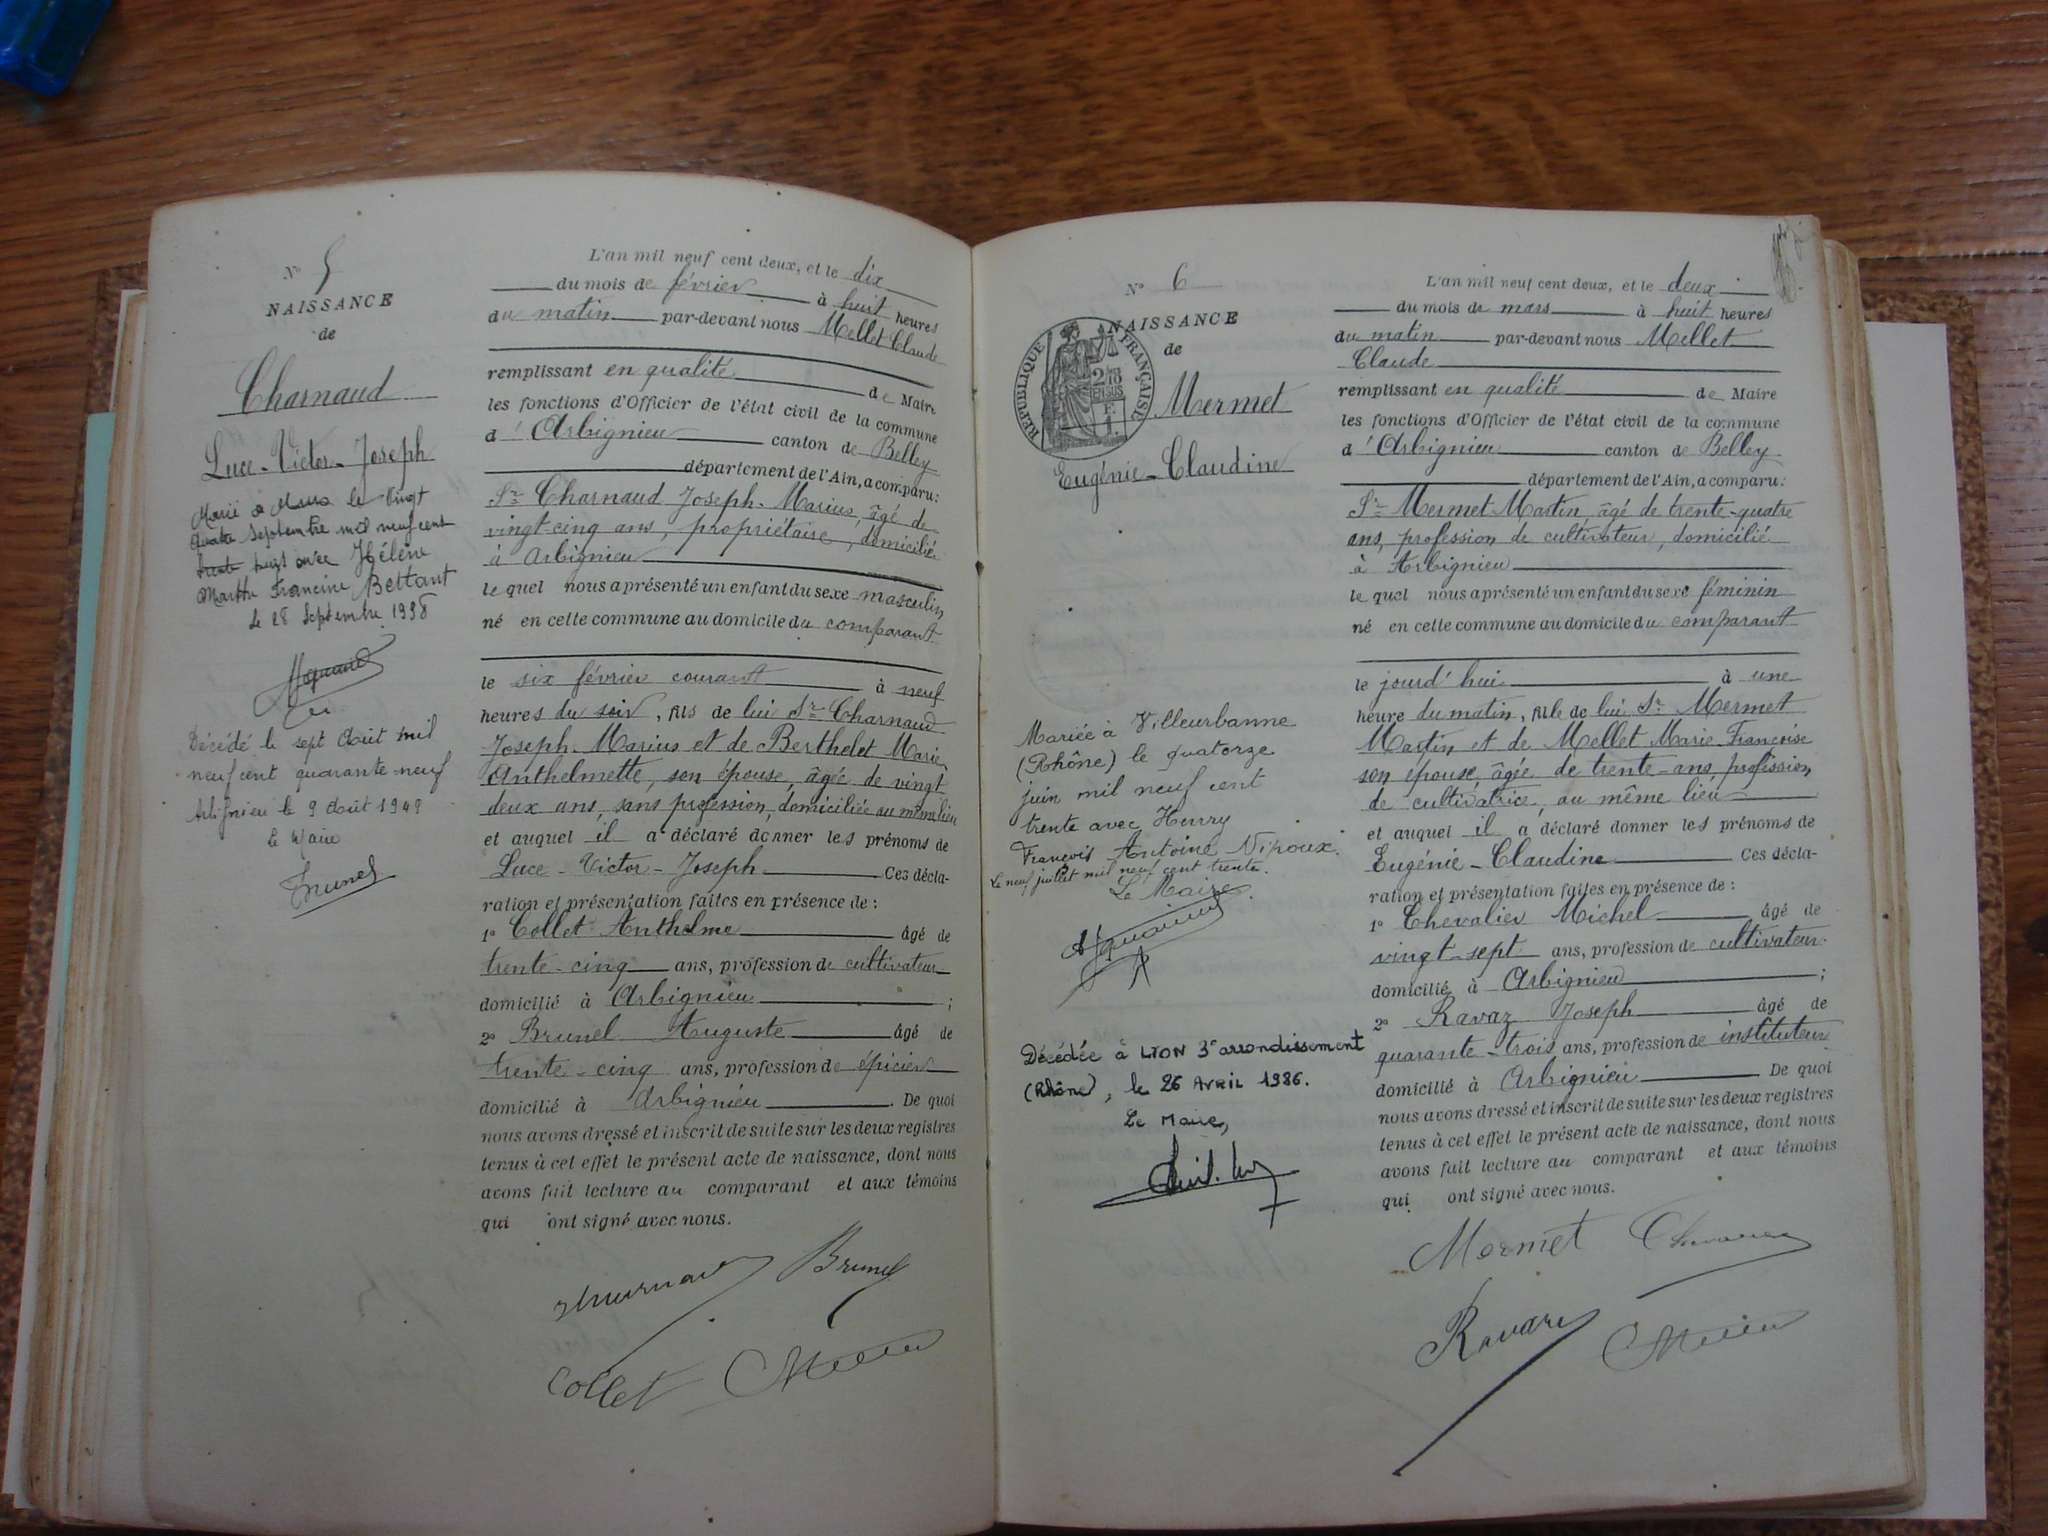 N° 5
NAISSANCE
de
Charnaud
Luce-Victor-Joseph
Marié à le vingt
quatre septembre mil neuf cent
trente huit avec Hélène
Marthe Francine Bettant
Le 28 Septembre 1938
Décédé le sept Août mil
neuf cent quarante neuf
Arbignieu le 9 Août 1949
Le Maire
Brunel
L'an mil neuf cent deux, et le dix
du mois de février à huit heures
du matin par-devant nous Mellet Claude
remplissant en qualité de Maire
les fonctions d'Officier de l'état civil de la commune
d'Arbignieu canton de Belley
département de l'Ain, a comparu:
Sr Charnaud Joseph-Marius, âgé de
vingt-cinq ans, propriétaire, domicilié
à Arbignieu
lequel nous a présenté un enfant du sexe masculin
né en cette commune au domicile du comparant
le six février courant à neuf
heures du soir, fils de lui Sr Charnaud
Joseph-Marius et de Berthelet Marie
Anthelmette, son épouse, âgée de vingt
deux ans, sans profession, domiciliée au même lieu
et auquel il a déclaré donner les prénoms de
Luce-Victor-Joseph Ces décla-
ration et présentation faites en présence de :
1° Collet Anthelme âgé de
trente-cinq ans, profession de cultivateur
domicilié à Arbignieu ;
2° Brunel Auguste âgé de
trente-cinq ans, profession de épicier
domicilié à Arbignieu. De quoi
nous avons dressé et inscrit de suite sur les deux registres
tenus à cet effet le présent acte de naissance, dont nous
avons fait lecture au comparant et aux témoins
qui ont signé avec nous.
Charnaud Brunel
Collet Mellet
N° 6
NAISSANCE
de
RÉPUBLIQUE FRANÇAISE
Mermet
Eugénie-Claudine
Mariée à Villeurbanne
(Rhône) le quatorze
juin mil neuf cent
trente avec Henry
François Antoine Nipoux.
Le neuf juillet mil neuf cent trente.
Le Maire
Décédée à LYON 3e arrondissement
(Rhône), le 26 AVRIL 1986.
Le Maire,
L'an mil neuf cent deux, et le deux
du mois de mars à huit heures
du matin par-devant nous Mellet
Claude
remplissant en qualité de Maire
les fonctions d'Officier de l'état civil de la commune
d'Arbignieu canton de Belley
département de l'Ain, a comparu:
Sr Mermet Martin, âgé de trente-quatre
ans, profession de cultivateur, domicilié
à Arbignieu
lequel nous a présenté un enfant du sexe féminin
né en cette commune au domicile du comparant
le jourd'hui à une
heure du matin, fille de lui Sr Mermet
Martin et de Mellet Marie-Françoise
son épouse, âgée de trente-ans, profession
de cultivatrice, au même lieu
et auquel il a déclaré donner les prénoms de
Eugénie-Claudine Ces décla-
ration et présentation faites en présence de :
1° Chevalier Michel âgé de
vingt-sept ans, profession de cultivateur
domicilié à Arbignieu ;
2° Ravaz Joseph âgé de
quarante-trois ans, profession de instituteur
domicilié à Arbignieu De quoi
nous avons dressé et inscrit de suite sur les deux registres
tenus à cet effet le présent acte de naissance, dont nous
avons fait lecture au comparant et aux témoins
qui ont signé avec nous.
Mermet Chevalier
Ravaz Mellet